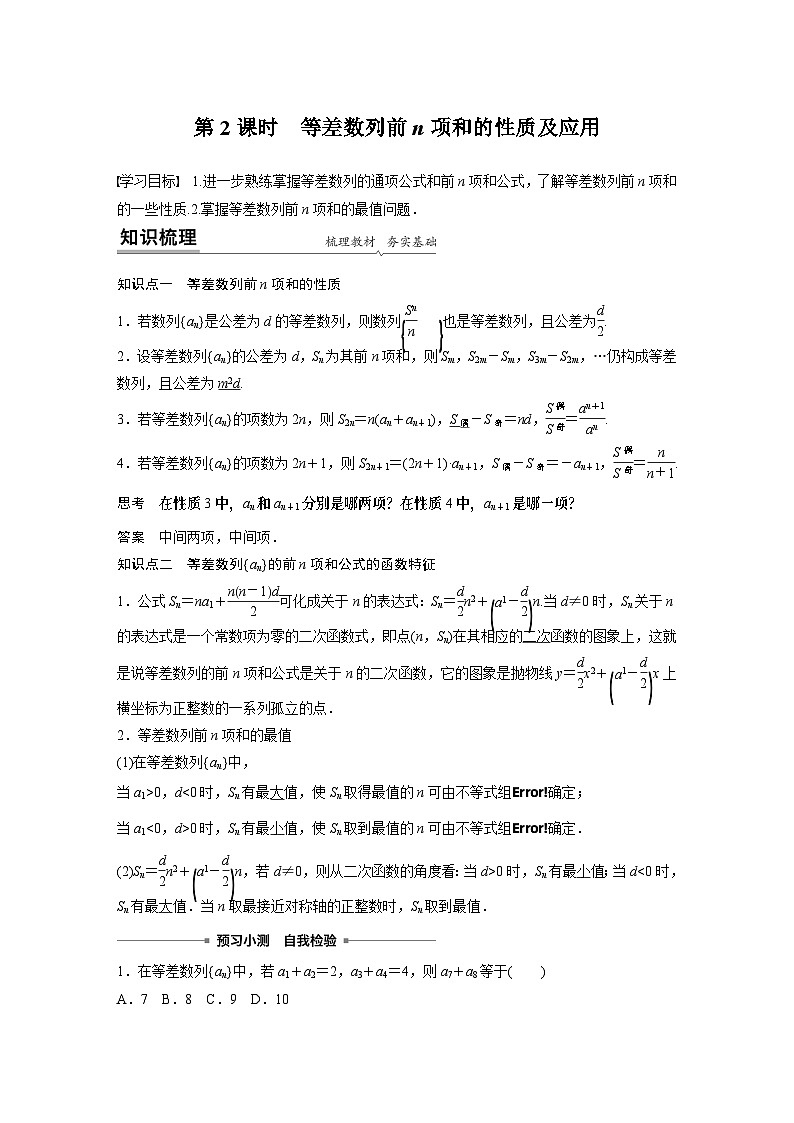 第 2 课时　等差数列前 n 项和的性质及应用
学习目标　1.进一步熟练掌握等差数列的通项公式和前 n 项和公式，了解等差数列前 n 项和
的一些性质.2.掌握等差数列前 n 项和的最值问题．
知识梳理　梳理教材　夯实基础
知识点一　等差数列前 n 项和的性质
1．若数列{aₙ}是公差为 d 的等差数列，则数列{Sn/n}也是等差数列，且公差为d/2.
2．设等差数列{aₙ}的公差为 d，Sₙ为其前 n 项和，则 Sₘ，S₂ₘ－Sₘ，S₃ₘ－S₂ₘ，…仍构成等差
数列，且公差为 m²d.
3．若等差数列{aₙ}的项数为 2n，则 S₂ₙ＝n(aₙ＋aₙ₊₁)，S偶－S奇＝nd，S偶/S奇＝an+1/an.
4．若等差数列{aₙ}的项数为 2n＋1，则 S₂ₙ₊₁＝(2n＋1)·aₙ₊₁，S偶－S奇＝－aₙ₊₁，S偶/S奇＝n/n＋1.
思考　在性质 3 中，aₙ和 aₙ₊₁分别是哪两项？在性质 4 中，aₙ₊₁是哪一项？
答案　中间两项，中间项．
知识点二　等差数列{aₙ}的前 n 项和公式的函数特征
1．公式 Sₙ＝na₁＋n(n－1)d/2可化成关于 n 的表达式：Sₙ＝d/2n2＋(a1－d/2)n.当 d≠0 时，Sₙ关于 n
的表达式是一个常数项为零的二次函数式，即点(n，Sₙ)在其相应的二次函数的图象上，这就
是说等差数列的前 n 项和公式是关于 n 的二次函数，它的图象是抛物线 y＝d/2x2＋(a1－d/2)x 上
横坐标为正整数的一系列孤立的点．
2．等差数列前 n 项和的最值
(1)在等差数列{aₙ}中，
当 a₁>0，d<0 时，Sₙ有最大值，使 Sₙ取得最值的 n 可由不等式组Error!确定；
当 a₁<0，d>0 时，Sₙ有最小值，使 Sₙ取到最值的 n 可由不等式组Error!确定．
(2)Sₙ＝d/2n2＋(a1－d/2)n，若 d≠0，则从二次函数的角度看：当 d>0 时，Sₙ有最小值；当 d<0 时，
Sₙ有最大值．当 n 取最接近对称轴的正整数时，Sₙ取到最值．
预习小测　自我检验
1．在等差数列{aₙ}中，若 a₁＋a₂＝2，a₃＋a₄＝4，则 a₇＋a₈等于(　　)
A．7　B．8　C．9　D．10